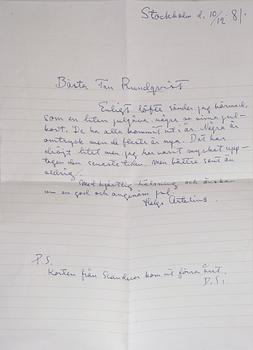 Stockholm d. 10/12 81.
Bästa Fru Rundqvist
Enligt löfte sänder jag härmed,
som en liten julgåva, några av mina jul-
kort. De ha alla kommit ut i år. Några är
omtryck men de flesta är nya. Det har
dröjt litet men jag har varit mycket upp-
tagen den senaste tiden. Men bättre sent än
aldrig.
Med hjärtlig hälsning och önskan
om en god och angenäm jul
Helge Artelius
P.S.
Korten från Scandecor kom ut förra året.
D.S.